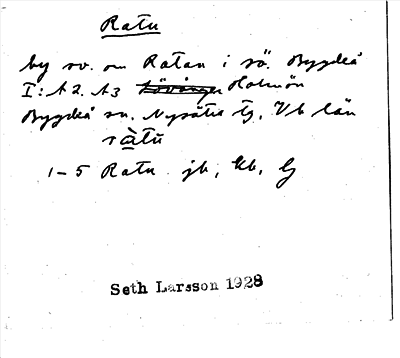 Ratu
by sv. om Ratan i sö. Bygdeå
I: A2. A3 Holmön
Bygdeå sn. Nysätra tg. Vb län
ràtu
1-5 Ratu jb, kb, lj
Seth Larsson 1928